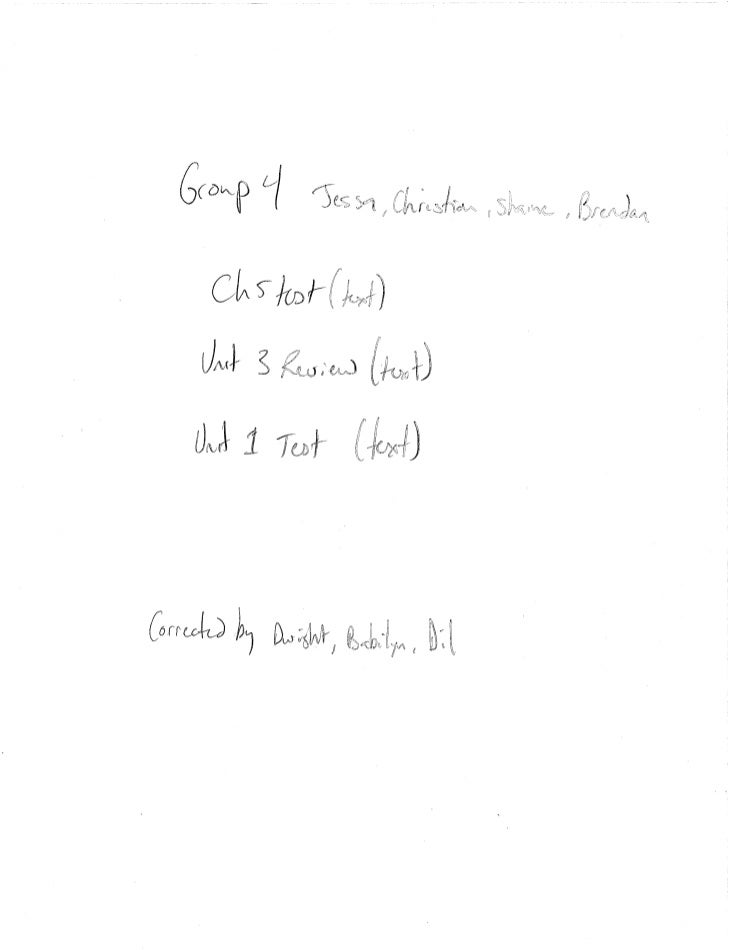 Group 4 Jessa, Christian, Shame, Brendan
Ch 5 test (text)
Unit 3 Review (text)
Unit 1 Test (text)
Corrected by Dwight, Babilyn, Dil